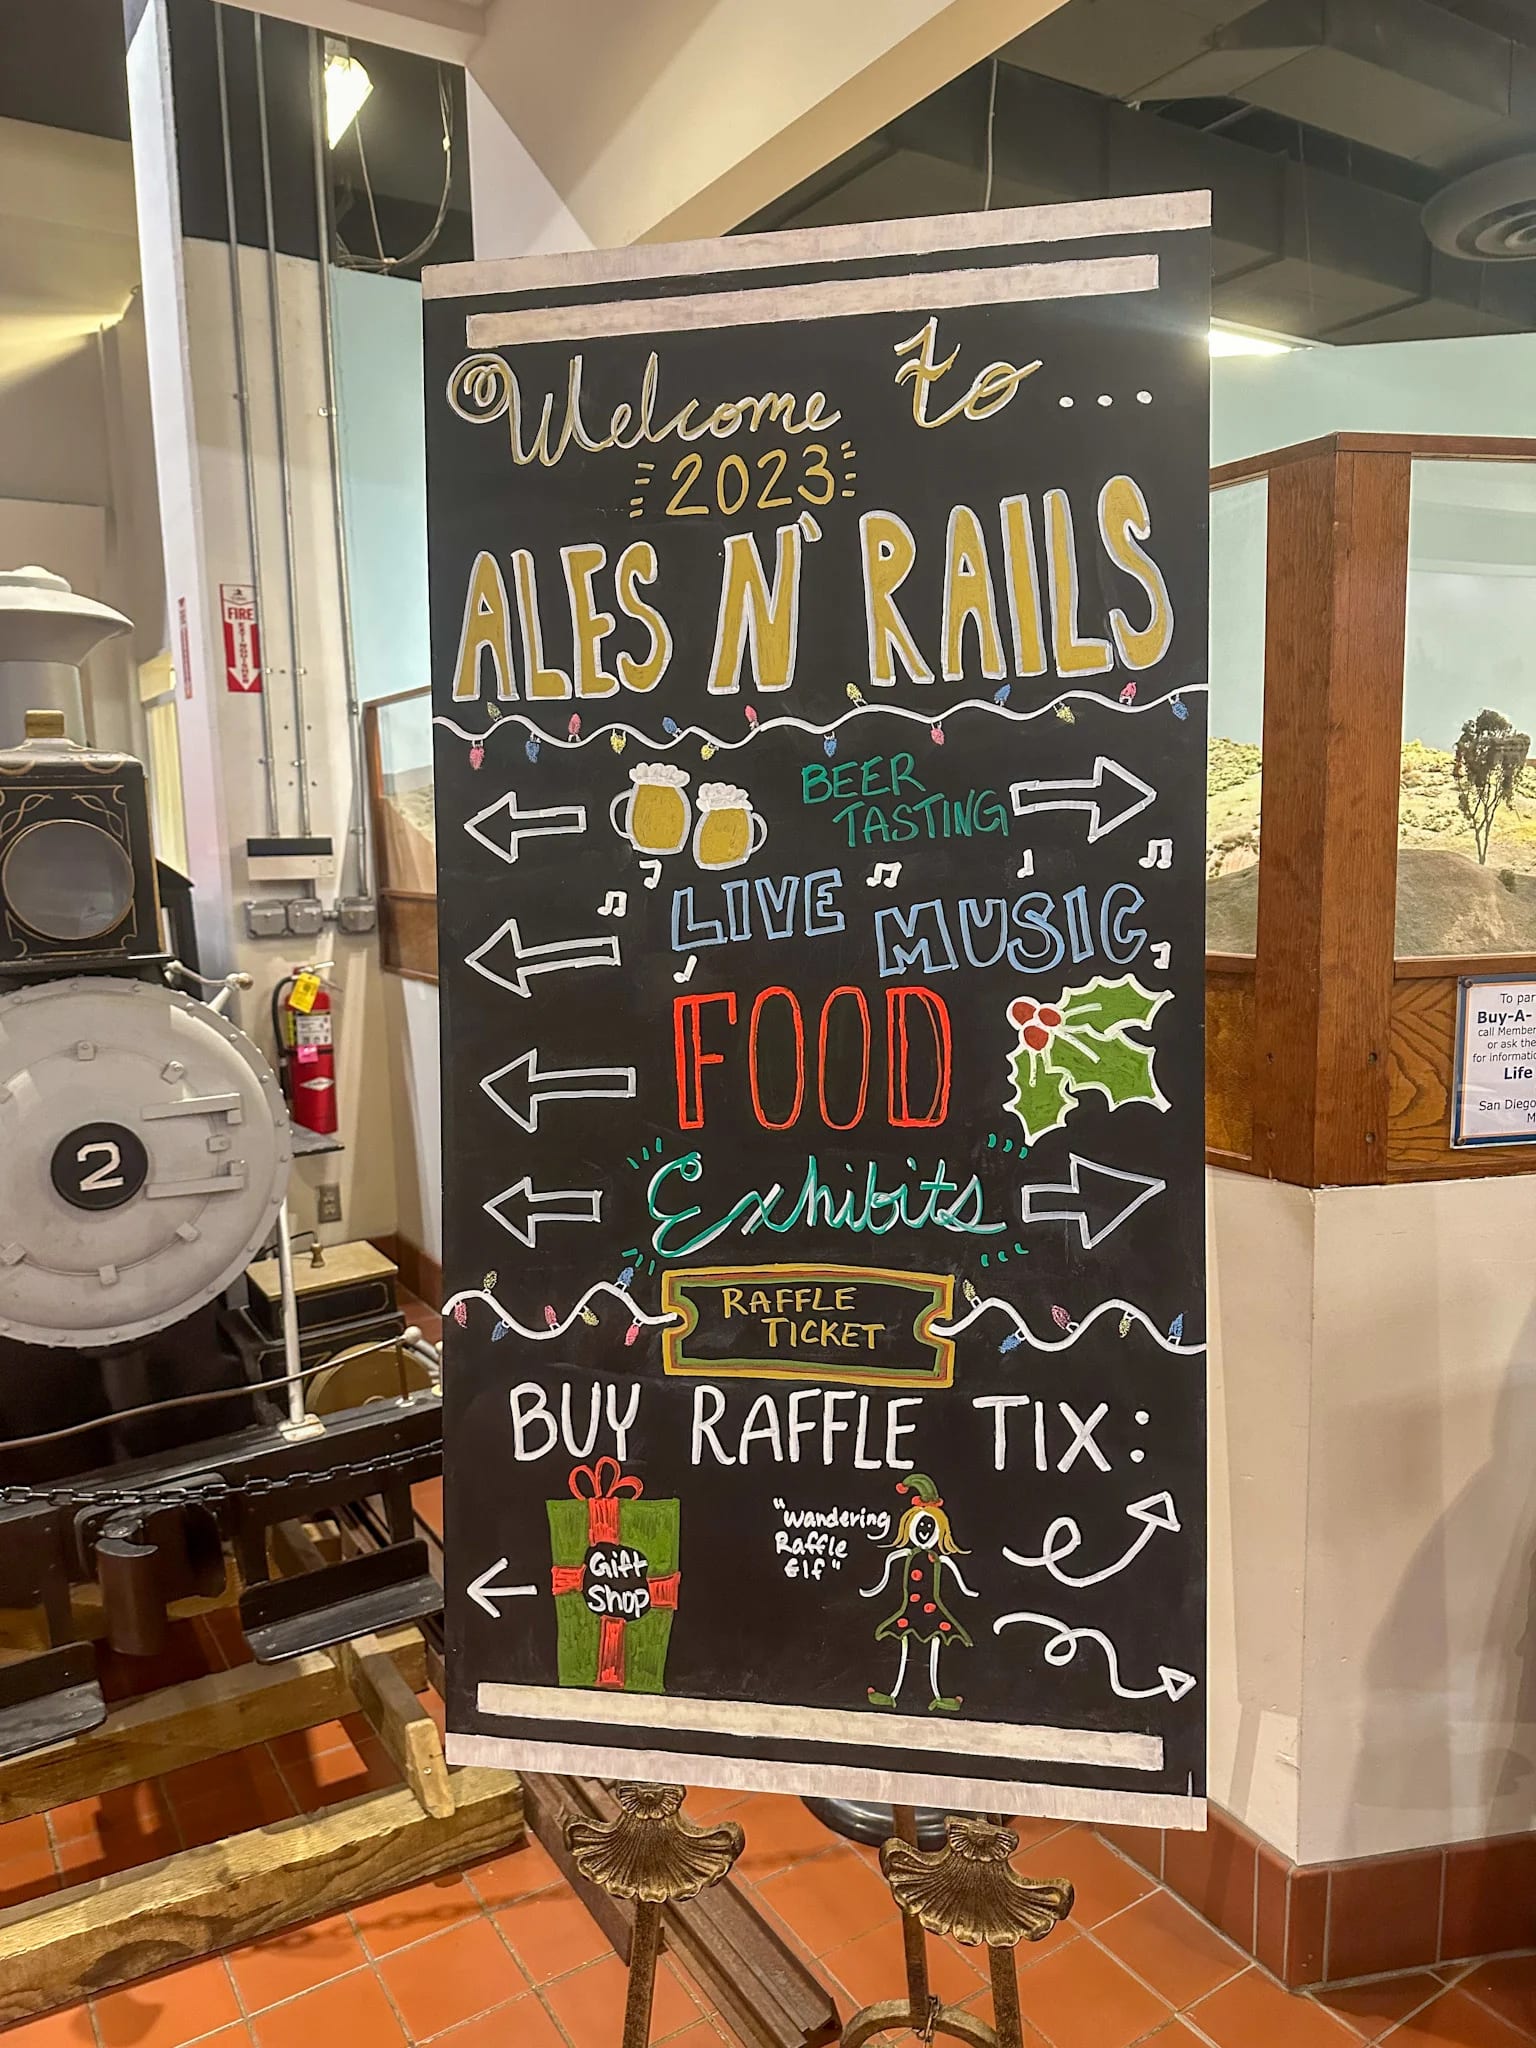 Welcome to...
2023
ALES N' RAILS
BEER
TASTING
LIVE MUSIC
FOOD
Exhibits
RAFFLE
TICKET
BUY RAFFLE TIX:
Gift
Shop
"Wandering
Raffle
Elf"
FIRE
EXTINGUISHER
2
To par
Buy-A-
call Member
or ask the
for informatio
Life
San Diego
M